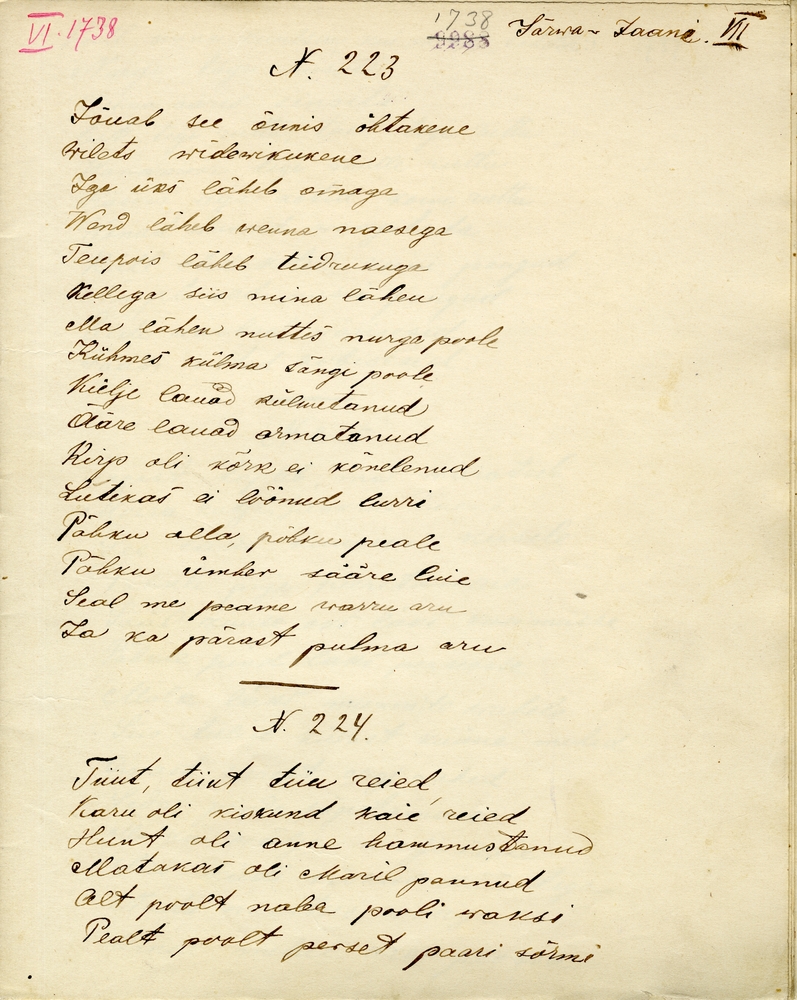 VI. 1738
1738
9983
Järwa-Jaani. VII
N. 223
Jõuab see õnnis õhtakene
Wilets widewikukene
Iga üks läheb omaga
Wend läheb wenna naesega
Teupois läheb tüdrukuga
Kellega siis mina lähen
Ma lähen nuttes nurga poole
Kühmes külma sängi poole
Külje lauad külmetanud
Ääre lauad armatanud
Kirp oli kõrk ei kõnelenud
Lutikas ei löönud lurri
Põhku alla, põhku peale
Põhku ümber sääre luie
Seal me peame warru aru
Ja ka pärast pulma aru
N. 224.
Tiiut, tiiut tiiu reied,
Karu oli kiskund kaie reied
Hunt oli anne hammustanud
Matakas oli Maril pannud
Alt poolt naba pooli waksi
Pealt poolt perset paari sõrmi